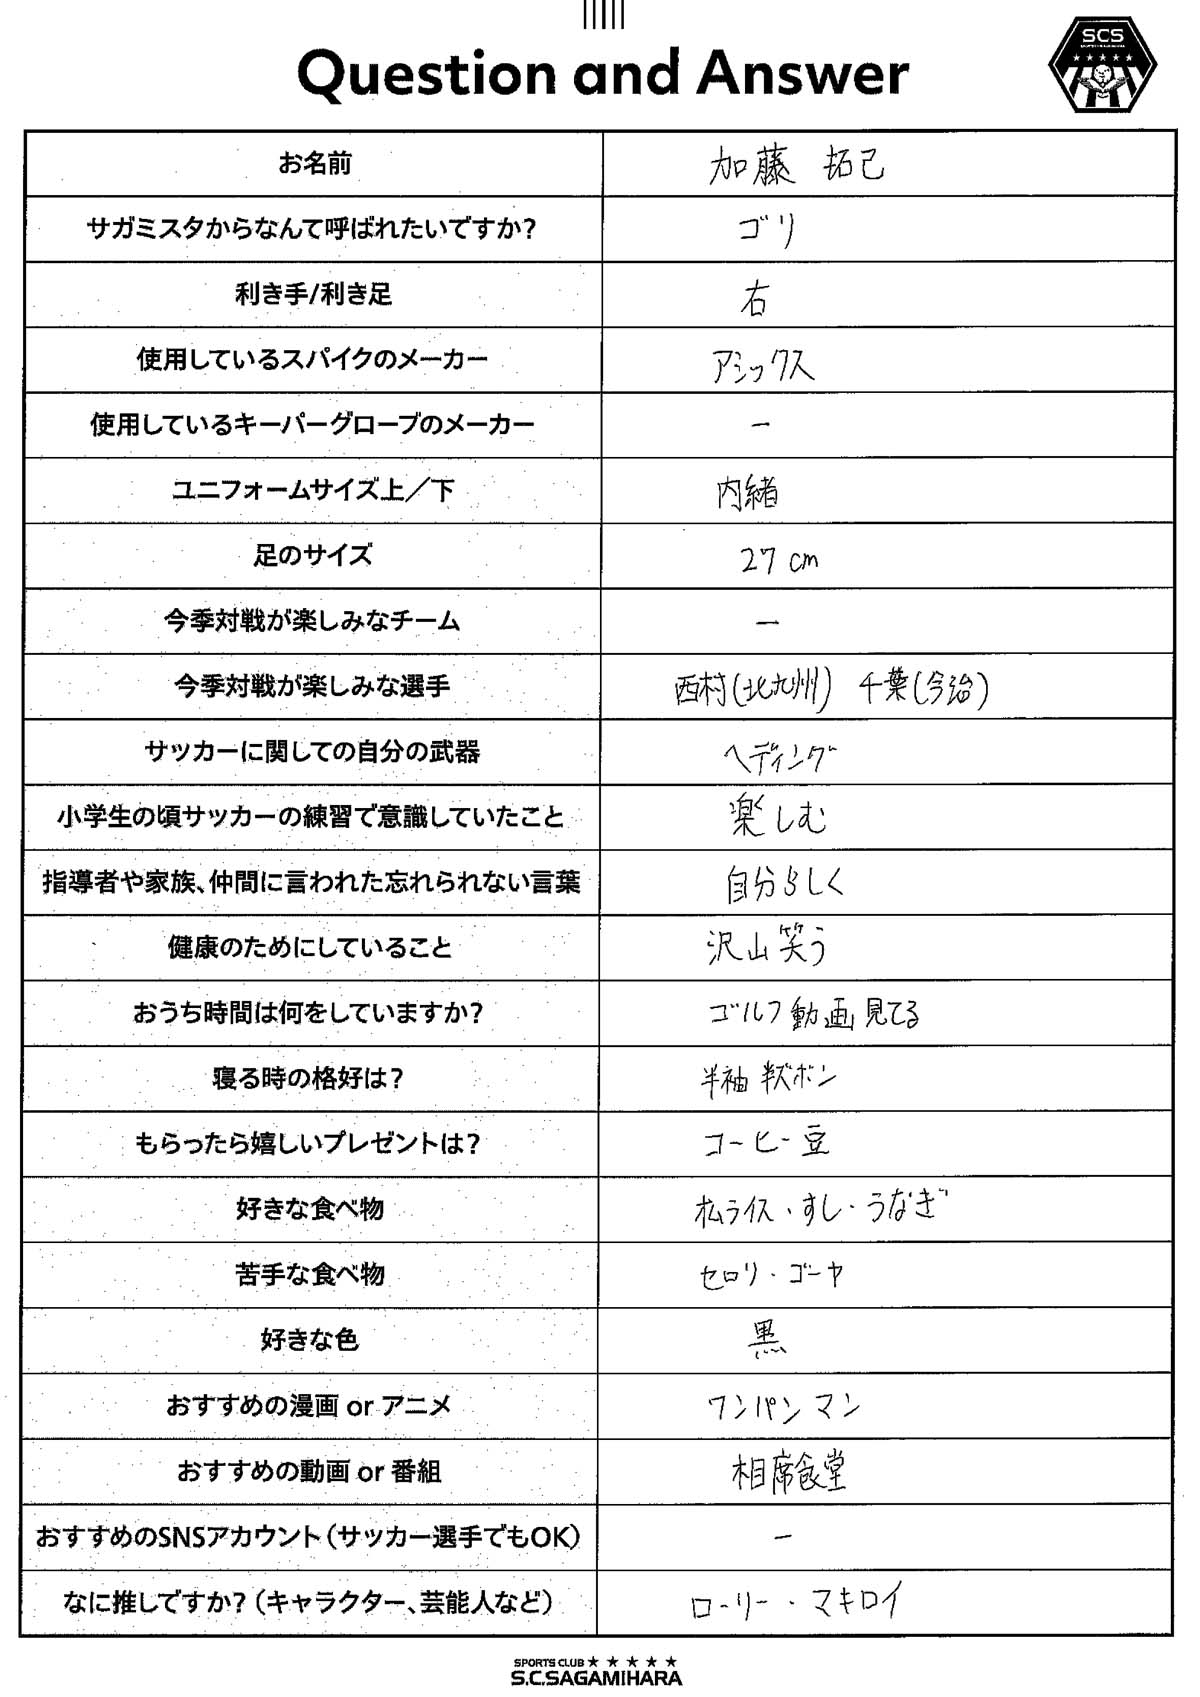 Question and Answer
SCS
お名前 加藤 拓己
サガミスタからなんて呼ばれたいですか? ゴリ
利き手/利き足 右
使用しているスパイクのメーカー アシックス
使用しているキーパーグローブのメーカー ー
ユニフォームサイズ上／下 内緒
足のサイズ 27cm
今季対戦が楽しみなチーム ー
今季対戦が楽しみな選手 西村(北九州) 千葉(今治)
サッカーに関しての自分の武器 ヘディング
小学生の頃サッカーの練習で意識していたこと 楽しむ
指導者や家族、仲間に言われた忘れられない言葉 自分らしく
健康のためにしていること 沢山笑う
おうち時間は何をしていますか? ゴルフ動画見てる
寝る時の格好は? 半袖 半ズボン
もらったら嬉しいプレゼントは? コーヒー豆
好きな食べ物 オムライス・すし・うなぎ
苦手な食べ物 セロリ・ゴーヤ
好きな色 黒
おすすめの漫画 or アニメ ワンパンマン
おすすめの動画 or 番組 相席食堂
おすすめのSNSアカウント(サッカー選手でもOK) ー
なに推しですか?(キャラクター、芸能人など) ローリー・マキロイ
SPORTS CLUB ★ ★ ★ ★ ★
S.C.SAGAMIHARA